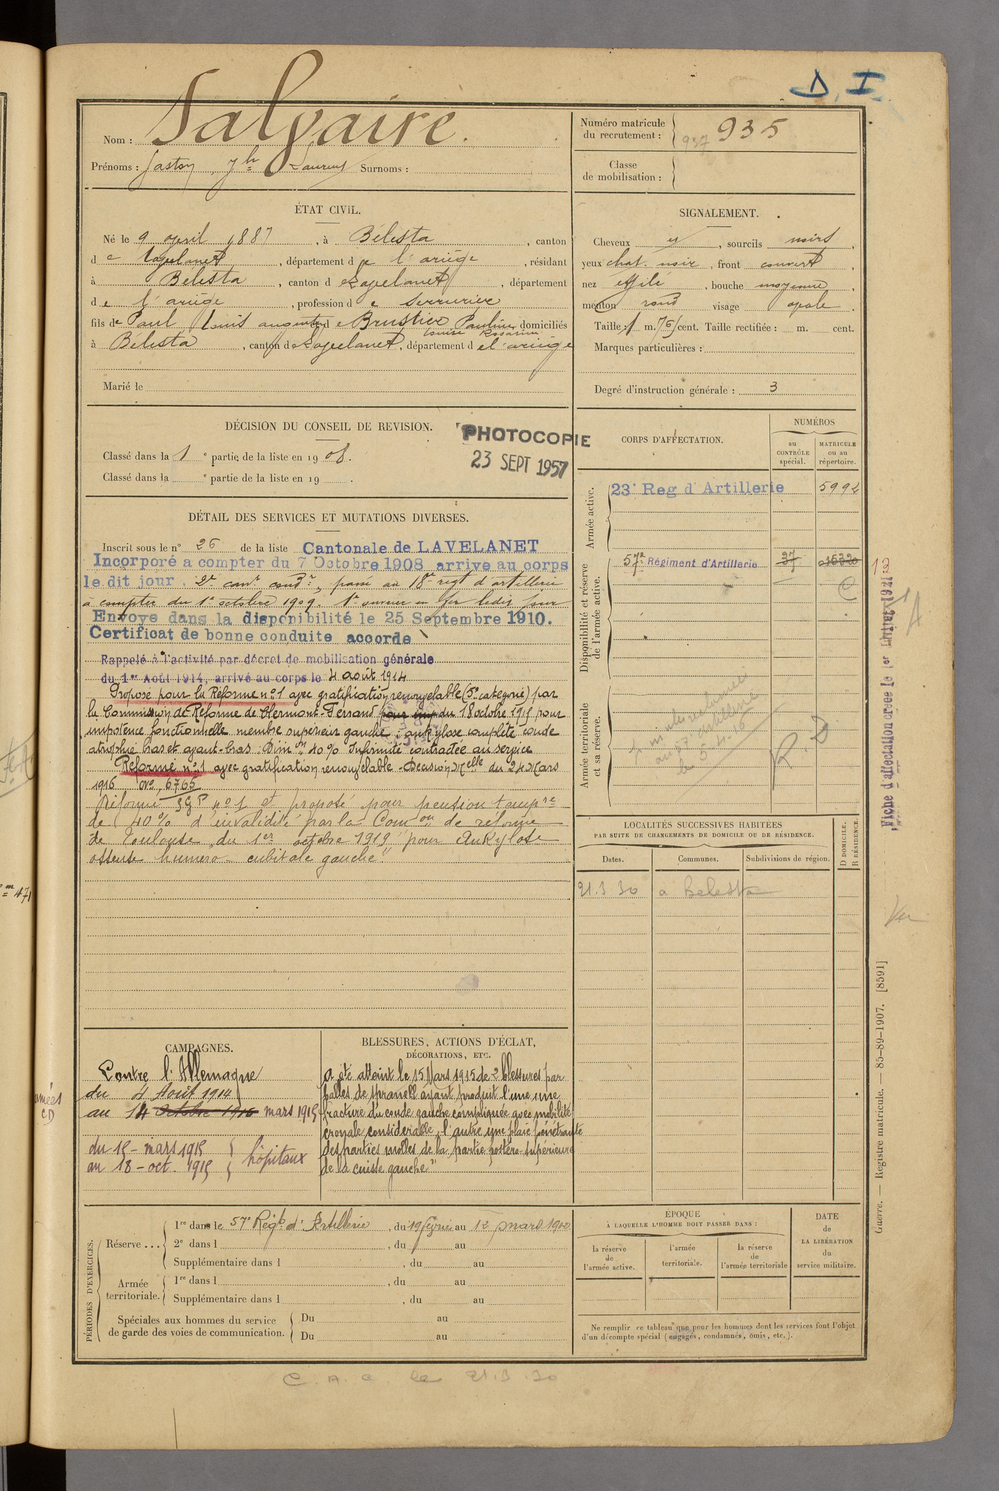 D. I.
Nom : Salvaire.
Prénoms : Gaston Jh Laurent Surnoms :
Numéro matricule du recrutement : 937 935
Classe de mobilisation :
ÉTAT CIVIL.
Né le 9 avril 1887, à Bélesta, canton
de Lavelanet, département de l'ariège, résidant
à Bélesta, canton de Lavelanet, département
de l'ariège, profession de serrurier
fils de Paul Louis auguste et de Brustier Pauline domiciliés
Louise Rosarine
à Bélesta, canton de Lavelanet, département de l'ariège
Marié le
SIGNALEMENT.
Cheveux et, sourcils noirs,
yeux chat. noir, front couvert,
nez effilé, bouche moyenne,
menton rond visage ovale
Taille : 1 m. 76 cent. Taille rectifiée : m. cent.
Marques particulières :
Degré d'instruction générale : 3
DÉCISION DU CONSEIL DE REVISION.
Classé dans la 1e partie de la liste en 1908.
Classé dans la e partie de la liste en 19 .
PHOTOCOPIE
23 SEPT 1957
DÉTAIL DES SERVICES ET MUTATIONS DIVERSES.
Inscrit sous le n° 26 de la liste Cantonale de LAVELANET
Incorporé a compter du 7 Octobre 1908 arrive au corps
le dit jour. 2e can. cond., passé au 18e regt d'artillerie
à compter du 1er octobre 1909.
Envoye dans la disponibilité le 25 Septembre 1910.
Certificat de bonne conduite accorde
Rappelé à l'activité par décret de mobilisation générale
du 1er Août 1914, arrivé au corps le 4 août 1914
Proposé pour la Réforme n° 1 avec gratification renouvelable (5e catégorie) par
la Commission de Réforme de Clermont-Ferrand du 18 octobre 1915 pour
impotence fonctionnelle membre supérieur gauche : ankylose complète coude
atrophie bras et avant-bras. Dim. on 40% Infirmité contractée au service
Réformé n° 1 avec gratification renouvelable Décision Mlle du 24 Mars
1916 n° 6765
Réformé n° 1 et proposé pour pension tempre
de 40% d'invalidité par la Comon de réforme
de Toulouse du 1er octobre 1919 pour "Ankylose
osseuse huméro-cubitale gauche"
CORPS D'AFFECTATION.
NUMÉROS
au CONTRÔLE spécial.
MATRICULE ou au répertoire.
Armée active.
23e Reg d'Artillerie 5992
Disponibilité et réserve de l'armée active.
57e Régiment d'Artillerie 37
Armée territoriale et sa réserve.
R. D
13
Fiche d'affectation créée le 1er 1921
LOCALITÉS SUCCESSIVES HABITÉES
PAR SUITE DE CHANGEMENTS DE DOMICILE OU DE RÉSIDENCE.
Dates. Communes. Subdivisions de région. D DOMICILE. R RÉSIDENCE.
21.3.30 à Bélesta
CAMPAGNES.
Contre l'Allemagne
du 4 Août 1914
au 14 Octobre 1915 mars 1915
du 15 - mars 1915
au 18 - oct. 1915 } hôpitaux
BLESSURES, ACTIONS D'ÉCLAT,
DÉCORATIONS, ETC.
A été atteint le 15 Mars 1915 de 2 blessures par
balles de shrapnell ayant produit l'une une
fracture du coude gauche compliquée avec mobilité
considérable, l'autre une plaie pénétrante
des parties molles de la partie postéro-supérieure
de la cuisse gauche"
PÉRIODES D'EXERCICES.
Réserve ... 1re dans le 57e Régt d'Artillerie, du 19 février au 12 mars 1912
2e dans l , du au
Supplémentaire dans l , du au
Armée territoriale. 1re dans l , du au
Supplémentaire dans l , du au
Spéciales aux hommes du service de garde des voies de communication. Du au
Du au
ÉPOQUE
À LAQUELLE L'HOMME DOIT PASSER DANS :
la réserve de l'armée active.
l'armée territoriale.
la réserve de l'armée territoriale
DATE de LA LIBÉRATION du service militaire.
Ne remplir ce tableau que pour les hommes dont les services font l'objet
d'un décompte spécial (engagés, condamnés, omis, etc.).
Guerre. — Registre matricule. — 85-89-1907. [8591]
C. A. C. le 21.3.30